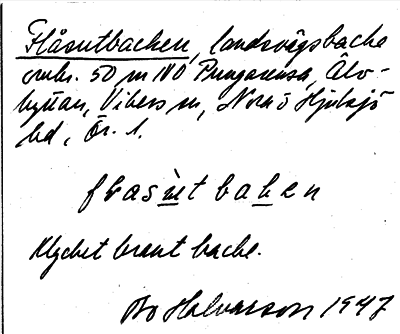 Flåsutbacken, landsvägsbacke
omkr. 50 m NO Pungarena, Älv-
hyttan, Vibers sn, Nora o Hjulsjö
bd, Ör. l.
flåsùtbaken
Mycket brant backe.
Bo Halvarson 1947